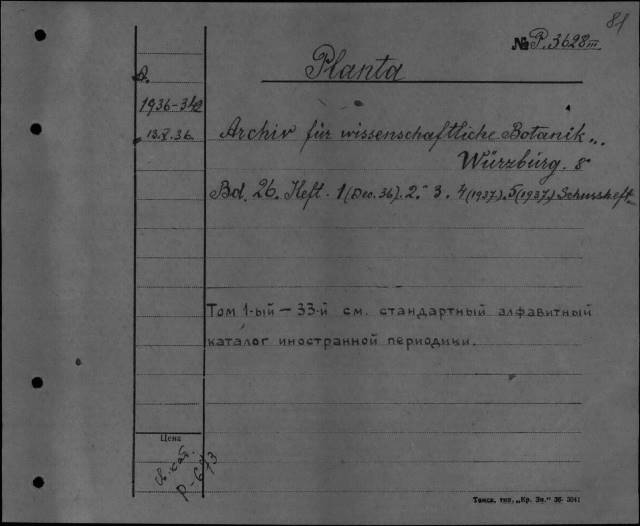 81
№ P. 3628 III
Planta
D.
1936-342
13.V.36.
Archiv für wissenschaftliche Botanik..
Würzburg. 8°
Bd. 26. Heft. 1 (Dec. 36). 2. 3. 4 (1937). 5 (1937) Schlussheft
Том 1-ый – 33-й см. стандартный алфавитный
каталог иностранной периодики.
Цена
Томск, тип. „Кр. Зн." 36- 3041